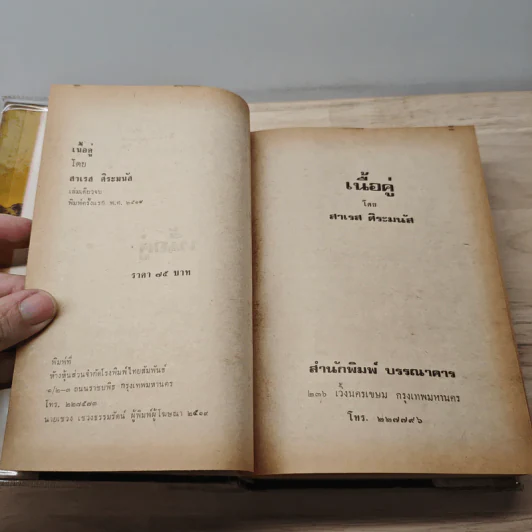 เนื้อคู่
โดย
สาเรส ศิระมนัส
เล่มเดียวจบ
พิมพ์ครั้งแรก พ.ศ. ๒๕๑๙
ราคา ๗๕ บาท
พิมพ์ที่
ห้างหุ้นส่วนจำกัดโรงพิมพ์ไทยสัมพันธ์
๑/๒-๓ ถนนราชบพิธ กรุงเทพมหานคร
โทร. ๒๒๗๕๗๓
ผู้พิมพ์ผู้โฆษณา ๒๕๑๙
เนื้อคู่
โดย
สาเรส ศิระมนัส
สำนักพิมพ์ บรรณาคาร
๒๓๖ เวิ้งนครเขษม กรุงเทพมหานคร
โทร. ๒๒๗๗๙๖